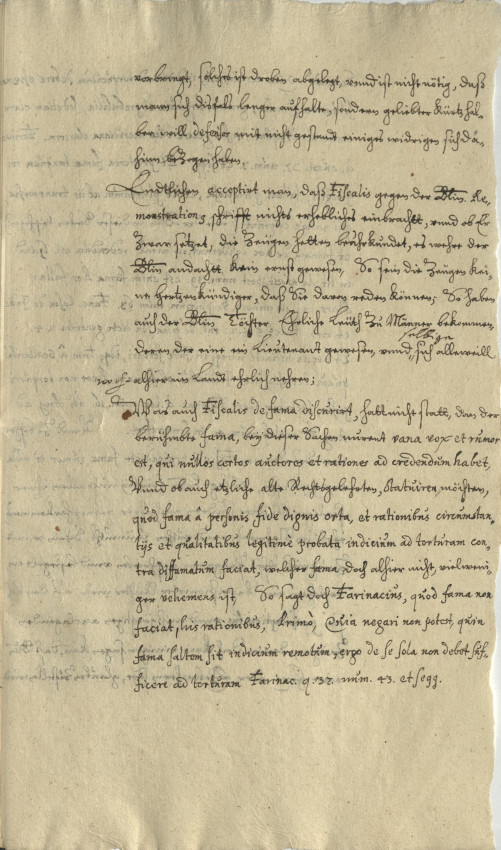 vorbringt, solches ist droben abgelegt, vnnd ist nicht nötig, daß
man sich disfals lenger aufhalte, sondern geliebter Kürtz hal-
ber will mit nicht gestandt einiges widriges sich da-
hinn bezogen haben.
Endtlichen acceptirt man, daß Fiscalis gegen der Bltin Re-
monstrations schrifft nichts erhebliches einbracht, vnnd ob Er
Zwar setzet, die Zeügen hetten beührkundet, es wehre der
Bltin andacht Kein ernst gewesen, So sein die Zeügen Kei-
ne hertzenkündiger, daß Sie davon reden können; So haben
auch der Bltin Töchter Ehrliche Leüth Zu Männer bekommen
selbige
deren der eine ein Lieutenant gewesen, vnnd sich alleweill
noch alhier im Landt ehrlich nehren;
Was auch Fiscalis de fama discurirt, hatt nicht statt, dan der
berühmbte fama, bey dieser Sachen nurent vana vox et rumor
est, qui nullos certos auctores et rationes ad credendum habet,
Vnnd ob auch etzliche alte Rechtsgelehrten, statuiren möchten,
quod fama â personis fide dignis orta, et rationibus circumstan-
tijs et qualitatibus legitimè probata indicium ad torturam con-
tra diffamatum faciat, welcher fama doch alhier nicht, vielweni-
ger vehemens ist, So sagt doch Farinacius, quod fama non
faciat, his rationibus, Primò, Quia negari non potest, quin
fama saltem sit indicium remotum, ergo de se sola non debet suf-
ficere ad torturam Farinac. q. 37. num. 43. et seqq.